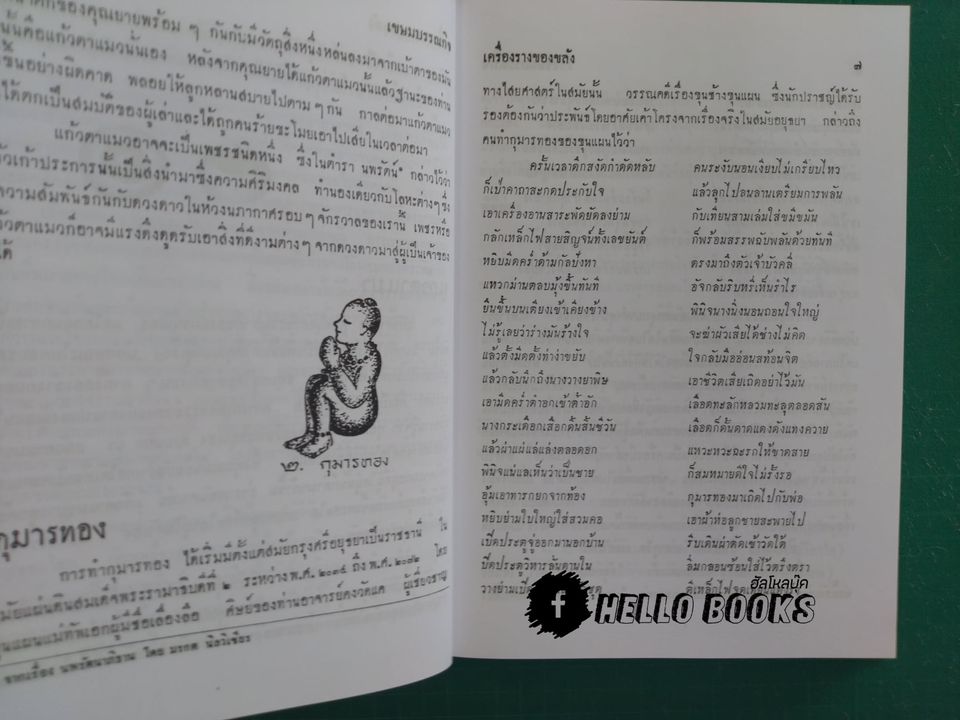 เขษมบรรณกิจ
นั้นคือแก้วตาแมวนั้นเอง หลังจากคุณยายได้แก้วตาแมวนั้นแล้วฐานะของท่าน
ขึ้นอย่างผิดคาด พลอยให้ลูกหลานสบายไปตาม ๆ กัน กาลต่อมาแก้วตาแมว
ได้ตกเป็นสมบัติของผู้เล่าและได้ถูกคนร้ายขะโมยเอาไปเสียในเวลาต่อมา
แก้วตาแมวอาจจะเป็นเพชรชนิดหนึ่ง ซึ่งในตำรา นพรัตน์* กล่าวไว้ว่า
เก้าประการนั้นเป็นสิ่งนำมาซึ่งความศิริมงคล ทำนองเดียวกับโลหะต่างๆ ซึ่ง
ความสัมพันธ์กันกับดวงดาวในห้วงนภากาศรอบๆ จักรวาลของเรานี้ เพชรหรือ
แก้วตาแมวก็อาจมีแรงดึงดูดรับเอาสิ่งที่ดีงามต่างๆ จากดวงดาวมาสู่ผู้เป็นเจ้าของ
ได้
๒. กุมารทอง
กุมารทอง
การทำกุมารทอง ได้เริ่มมีตั้งแต่สมัยกรุงศรีอยุธยาเป็นราชธานี ใน
สมัยแผ่นดินสมเด็จพระรามาธิบดีที่ ๒ ระหว่าง พ.ศ. ถึง พ.ศ. โดย
ขุนแผนแม่ทัพเอกผู้มีชื่อเลื่องลือ ศิษย์ของท่านอาจารย์คงวัดแค ผู้เชี่ยวชาญ
จากเรื่อง นพรัตนาภิธาน โดย มรกต นิลวิเชียร
เครื่องรางของขลัง ๗
ทางไสยศาสตร์ในสมัยนั้น วรรณคดีเรื่องขุนช้างขุนแผน ซึ่งนักปราชญ์ได้รับ
รองต้องกันว่าประพันธ์โดยอาศัยเค้าโครงจากเรื่องจริงในสมัยอยุธยา กล่าวถึง
คนทำกุมารทองของขุนแผนไว้ว่า
ครั้นเวลาดึกสงัดกำดัดหลับ คนระงับนอนเงียบไม่เกรียบไหว
ก็เป่าคาถาสะกดประกับใจ แล้วลุกไปอนลานเตรียมการพลัน
เอาเครื่องอานสาระพัดยัดลงย่าม กับเทียนสามเล่มใส่ขมีขมัน
กลักเหล็กไฟสายสิญจน์ทั้งเลขยันต์ ก็พร้อมสรรพฉับพลันด้วยทันที
หยิบมีดคร่ำด้ามกัลปังหา ตรงมาถึงตัวเจ้าบัวคลี่
แหวกม่านตลบมุ้งขึ้นทันที อัจกลับริบหรี่เห็นรำไร
ยืนขึ้นบนเตียงเข้าเคียงข้าง พินิจนางนิ่งนอนถอนใจใหญ่
ไม่รู้เลยว่าร่างมันร้างใจ จะฆ่าผัวเสียได้ช่างไม่คิด
แล้วตั้งมีดตั้งท่าง่าขยับ ใจกลับมืออ่อนสท้อนจิต
แล้วกลับนึกถึงนางวางยาพิษ เอาชีวิตเสียเถิดอย่าไว้มัน
เอามีดคร่ำตำอกเข้าต้ำอัก เลือดทะลักหลวมทะลุตลอดสัน
นางกระเดือกเสือกดิ้นสิ้นชีวัน เลือดก็ดั้นดาดแดงดังแทงควาย
แล้วผ่าแผ่แล่แล่งตลอดอก แหวะหวะฉะรกให้ขาดสาย
พินิจแน่แลเห็นว่าเป็นชาย ก็สมหมายดีใจไม่รั้งรอ
อุ้มเอาทารกยกจากท้อง กุมารทองมาเถิดไปกับพ่อ
หยิบย่ามใบใหญ่ใส่สวมคอ เอาผ้าห่อลูกชายสะพายไป
เปิดประตูจู่ออกมานอกบ้าน รีบเดินผ่าตัดเข้าวัดใต้
ปิดประตูวิหารลั่นดานใน ลิ่มกลอนซ้อนใส่ไว้ตรึงตรา
วางย่าม
ฮัลโหลบุ๊ค
HELLO BOOKS